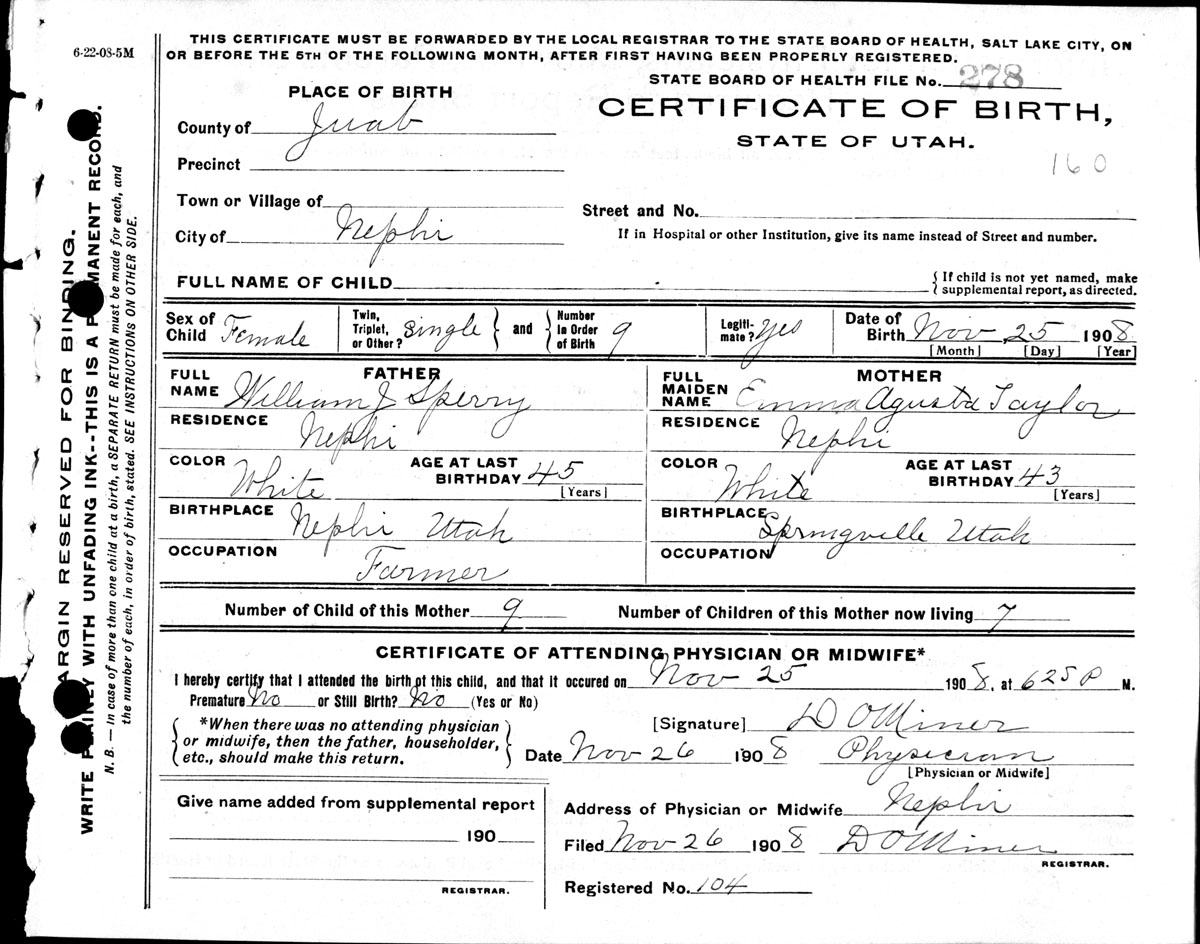 6-22-08-5M
THIS CERTIFICATE MUST BE FORWARDED BY THE LOCAL REGISTRAR TO THE STATE BOARD OF HEALTH, SALT LAKE CITY, ON
OR BEFORE THE 5TH OF THE FOLLOWING MONTH, AFTER FIRST HAVING BEEN PROPERLY REGISTERED.
STATE BOARD OF HEALTH FILE No. 278
PLACE OF BIRTH
CERTIFICATE OF BIRTH,
County of Juab
STATE OF UTAH.
160
Precinct
Town or Village of
Street and No.
City of Nephi
If in Hospital or other Institution, give its name instead of Street and number.
FULL NAME OF CHILD
{ If child is not yet named, make
supplemental report, as directed.
Sex of Child Female
Twin, Triplet, or Other? Single } and { Number in Order of Birth 9
Legiti-mate? yes
Date of Birth Nov 25 1908
[Month] [Day] [Year]
FATHER
FULL NAME William J Sperry
RESIDENCE Nephi
COLOR White AGE AT LAST BIRTHDAY 45
[Years]
BIRTHPLACE Nephi Utah
OCCUPATION Farmer
MOTHER
FULL MAIDEN NAME Emma Agusta Taylor
RESIDENCE Nephi
COLOR White AGE AT LAST BIRTHDAY 43
[Years]
BIRTHPLACE Springville Utah
OCCUPATION
Number of Child of this Mother 9 Number of Children of this Mother now living 7
CERTIFICATE OF ATTENDING PHYSICIAN OR MIDWIFE*
I hereby certify that I attended the birth of this child, and that it occured on Nov 25 1908, at 625 P M.
Premature No or Still Birth? No (Yes or No)
{ *When there was no attending physician
or midwife, then the father, householder,
etc., should make this return. }
[Signature] D O Miner
Date Nov 26 1908 Physician
[Physician or Midwife]
Give name added from supplemental report
190
REGISTRAR.
Address of Physician or Midwife Nephi
Filed Nov 26 1908 D O Miner
REGISTRAR.
Registered No. 104
ARGIN RESERVED FOR BINDING.
WRITE PLAINLY WITH UNFADING INK--THIS IS A PERMANENT RECORD.
N. B. — In case of more than one child at a birth, a SEPARATE RETURN must be made for each, and
the number of each, in order of birth, stated. SEE INSTRUCTIONS ON OTHER SIDE.